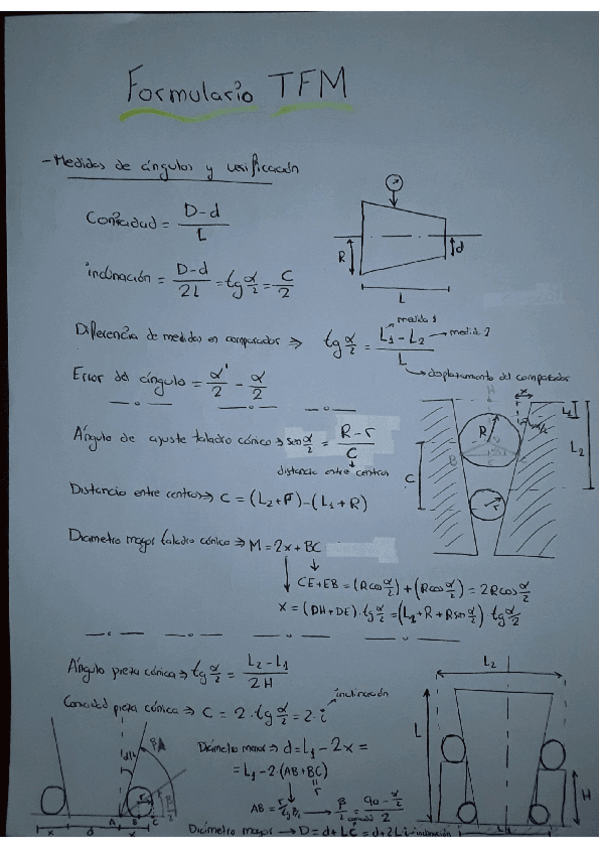 Formulario TFM
- Medidas de ángulos y verificación
Conicidad = D-d / L
R
d
L
inclinación = D-d / 2L = tg α/2 = C/2
Diferencia de medidas en comparador ⇒ tg α/2 = L1 - L2 / L
medida 1
medida 2
desplazamiento del comparador
Error del ángulo = α'/2 - α/2
Ángulo de ajuste taladro cónico ⇒ sen α/2 = R - r / C
distancia entre centros
Distancia entre centros ⇒ C = (L2 + r) - (L1 + R)
Diámetro mayor taladro cónico ⇒ M = 2x + BC
CE + EB = (R cos α/2) + (R cos α/2) = 2R cos α/2
x = (DH + DE) · tg α/2 = (L1 + R + R sen α/2) tg α/2
x
L1
L2
R
B
C
r
Ángulo pieza cónica ⇒ tg α/2 = L2 - L1 / 2H
Conicidad pieza cónica ⇒ C = 2 · tg α/2 = 2 · i
inclinación
Diámetro menor ⇒ d = L1 - 2x =
= L1 - 2 · (AB + BC)
r
AB = r / tg β/2 → β/2 = 90 - α/2 / 2
Diámetro mayor → D = d + LC = d + 2Li
inclinación
L2
L
H
x
d
A
B
C
x